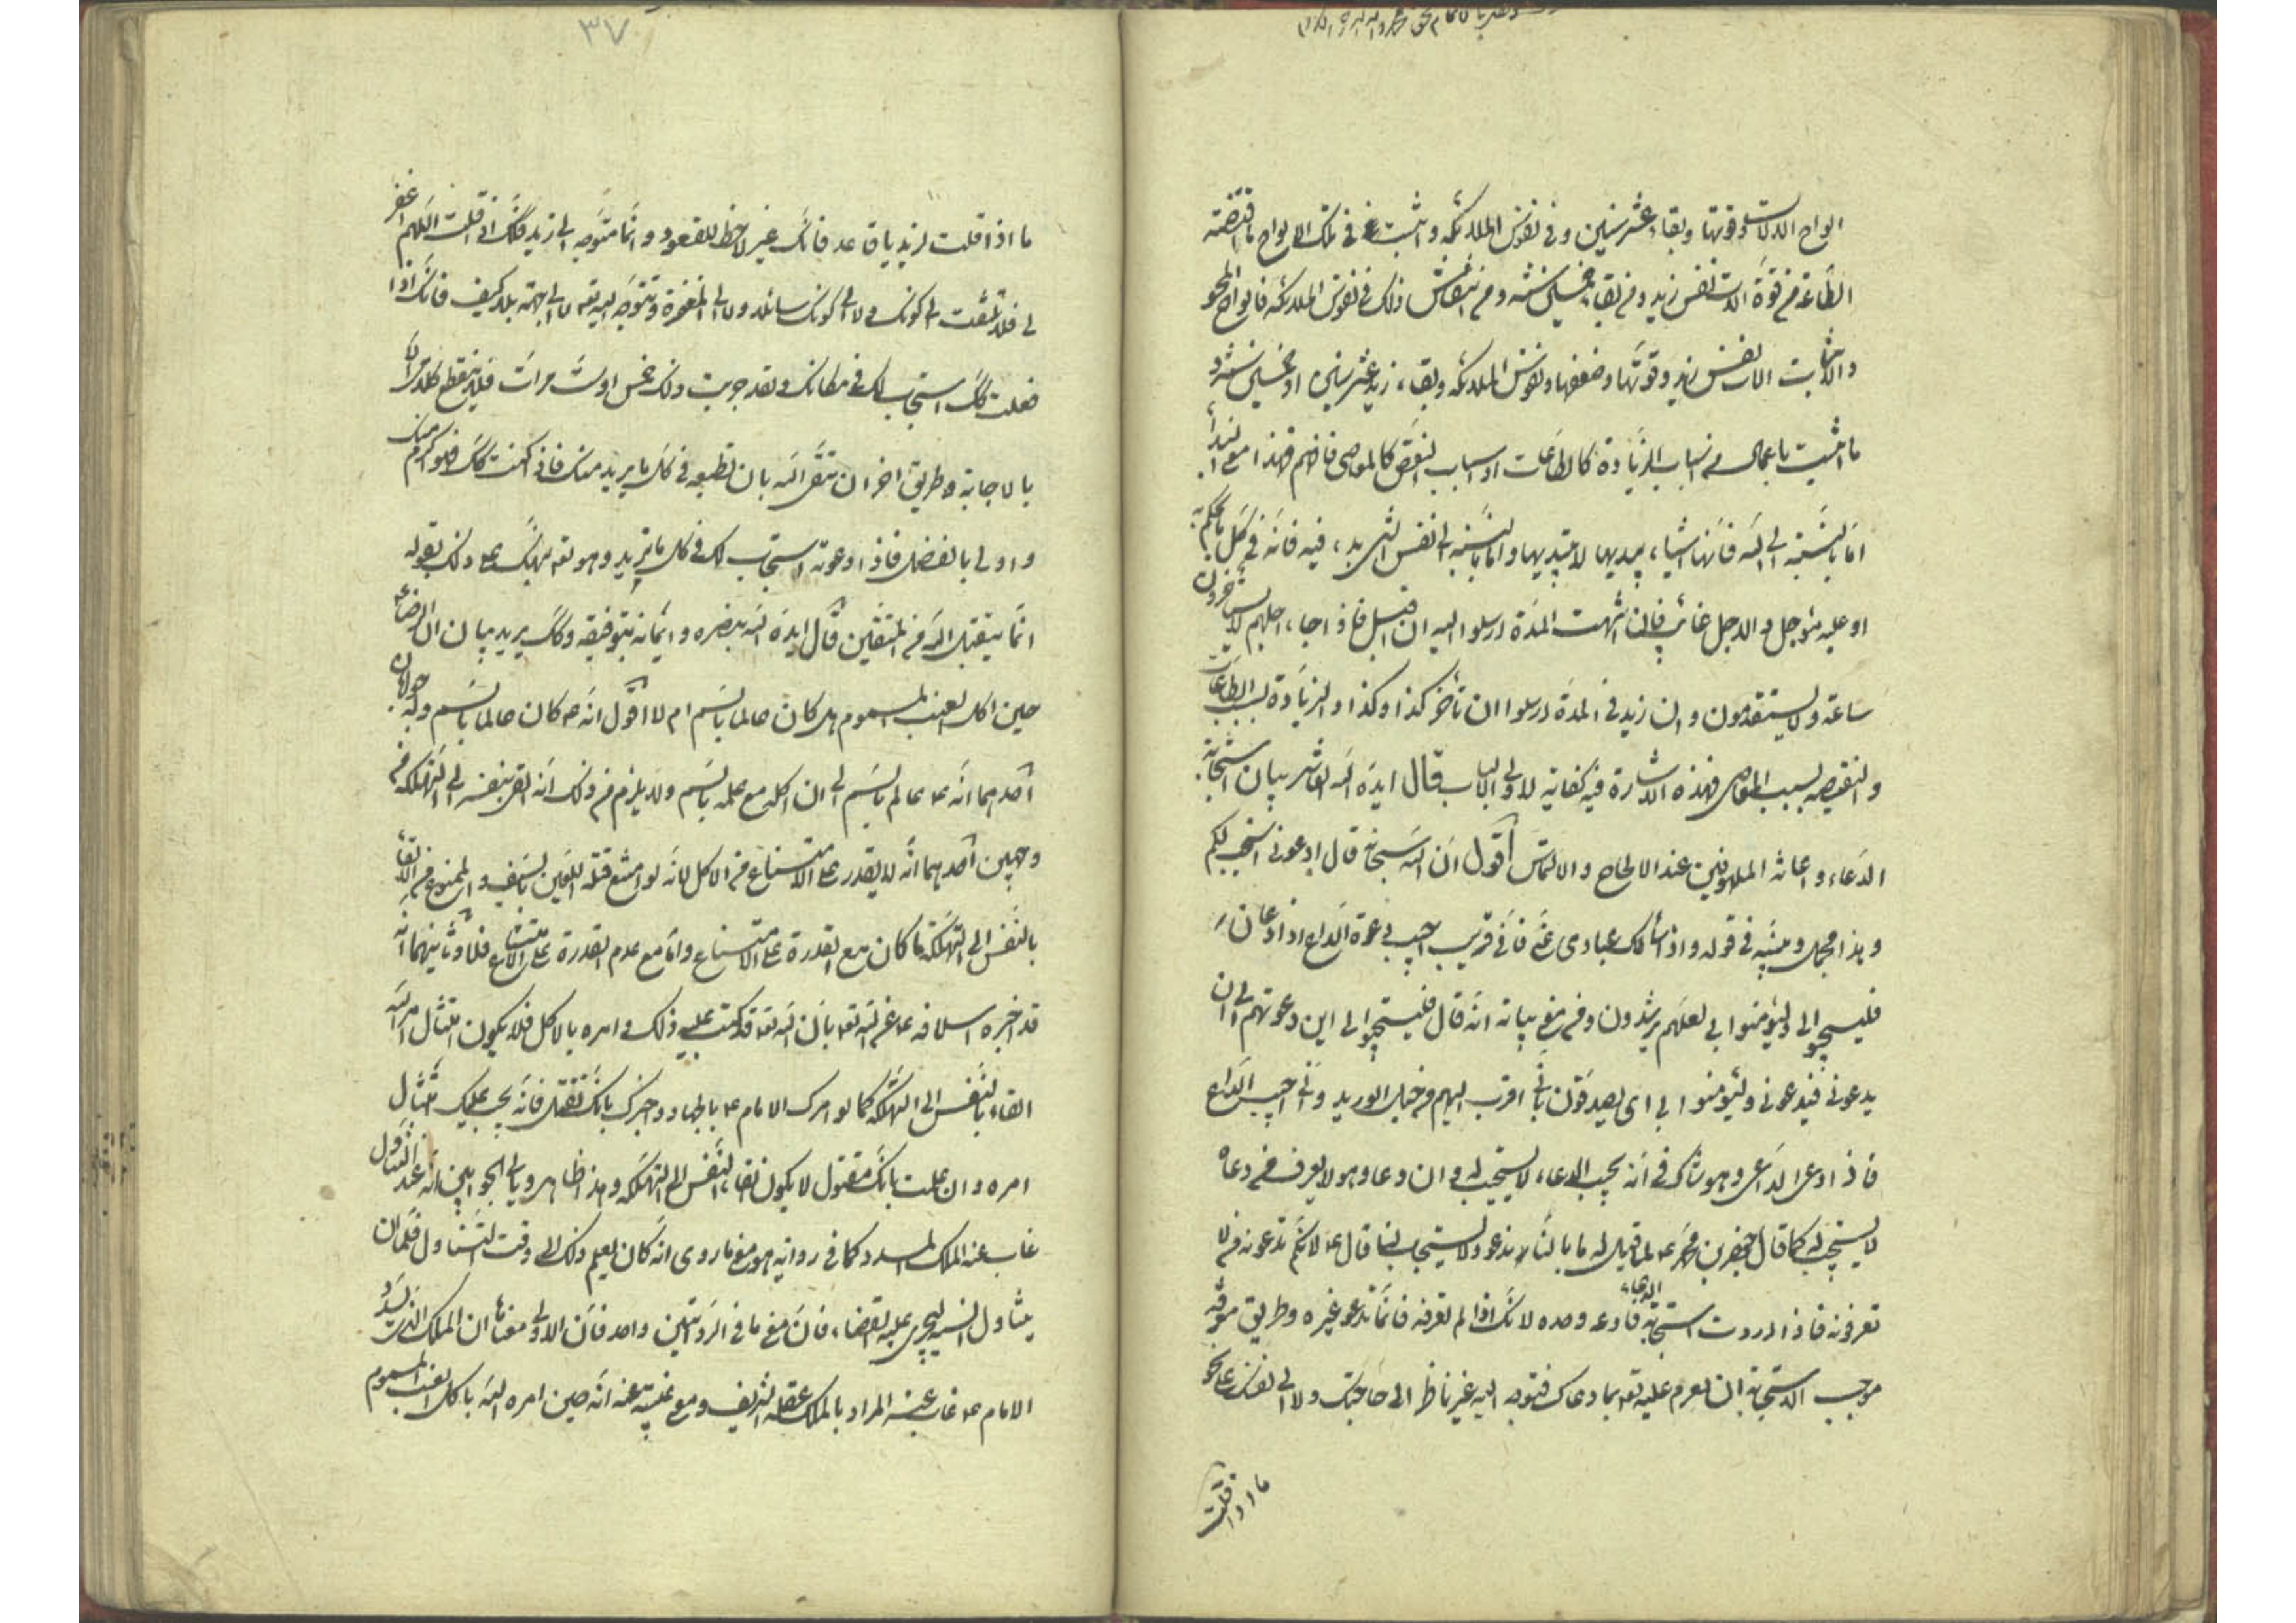 الواح الالات وقوتها وبقاء عشر سنين وفى نفوس الملائكة واثبت فى تلك الالواح ما اقتضته
الطاعة من قوة الات نفس زيد ومن بقاء خمسين سنة ومن انتقاش ذلك فى نفوس الملائكة فالواح المحو
والاثبات الات نفس زيد وقوتها وضعفها ونفوس الملائكة وبقاء زيد عشر سنين او خمسين سنة
ما اثبت باعمال من اسباب الزيادة كالطاعات او اسباب النقص كالمعاصى فافهم فهذا معنى البدا
اما بالنسبة الى الله فانها اشياء يبديها لا يبتديها واما بالنسبة الى نفس الشىء فيه فانه فى كل
او عليه مؤجل والاجل غائب فان انتهت المدة ارسلوا اليه ان اقبل فاذا جاء اجلهم لا يستاخرون
ساعة ولا يستقدمون وان زيد فى المدة ارسلوا ان تأخر كذا وكذا والزيادة بسبب الطاعات
والنقيصه بسبب المعاصى فهذه الاشارة فيه كفاية لاولى الالباب قال ايده الله العاشر بيان استجابة
الدعاء واغاثة الملهوفين عند الالحاح والالتماس اقول ان الله سبحانه قال ادعونى استجب لكم
وهذا مجمل وبينه فى قوله واذا سألك عبادى عنى فانى قريب اجيب دعوة الداع اذا دعان
فليستجيبوا لى وليؤمنوا بى لعلهم يرشدون وفى معنى بيانه انه قال فليستجيبوا لى اين دعوتهم الى ان
يدعونى فيدعونى وليؤمنوا بى اى يصدقون بانى اقرب اليهم من حبل الوريد وانى اجيب الداع
فاذا دعى الداعى وهو شاك فى انه يجيب الدعاء لا يستجيب له وان دعا وهو لا يعرف من دعاه
لا يستجيب له كما قال جعفر بن محمد ع لما قيل له ما بالنا ندعو ولا يستجاب لنا قال ع لانكم تدعون من لا
تعرفونه فاذا اردت استجابة الدعاء فادعه وحده لانك اذا لم تعرفه فانما تدعو غيره وطريق معرفة
موجب الاستجابة ان تعزم عليه تعه بما دعاك فتوجه اليه غير ناظر الى حاجتك ولا الى نفسك على نحو
ما اذا قلت
٣٧
ما اذا قلت لزيد يا قاعد فانك غير لاحظ للقعود وانما متوجه الى زيد فكك اذا قلت اللهم اغفر
لى فلا تلتفت الى كونك ولا الى كونك سائلا ولا الى المغفرة وتتوجه اليه تعه لا الى جهة بلا كيف فانك اذا
فعلت كك استجاب لك فى مكانك ولقد جربت ذلك خمس او ست مرات فلا ينقطع كلامى الا
بالاجابة وطريق اخر ان تتقى الله بان تطيعه فى كل ما يريد منك فاذا كنت كك فهو اكرم منك
واولى بالفضل فاذا دعوته استجاب لك فى كل ما تريد وهو تعه نبهك على ذلك بقوله
انما يتقبل الله من المتقين قال ايده الله بنصره واعانه بتوفيقه وكك يريد بيان ان الرضا ع
حين اكل العنب المسموم هل كان عالما بالسم ام لا اقول انه ع كان عالما بالسم وله جوابان
احدهما انه ع عالم بالسم الى ان اكله مع علمه بالسم ولا يلزم من ذلك انه القى بنفسه الى التهلكة من
وجهين احدهما انه لا يقدر على الامتناع من الاكل لانه لو امتنع قتله اللعين بالسيف والممنوع من الالقاء
بالنفس الى التهلكة ما كان مع القدرة على الامتناع واما مع عدم القدرة على الامتناع فلا وثانيهما انه
قد اخبره اسلافه ع عن الله تعه بان الله تعه قد كتب عليه ذلك وامره بالاكل فلا يكون امتثال امر الله
القاء بالنفس الى التهلكة كما لو امرك الامام ع بالجهاد واخبرك بانك تقتل فانه يجب عليك امتثال
امره وان علمت بانك مقتول لا يكون القاء بالنفس الى التهلكة وهذا ظاهر وثانى الجوابين انه عند التناول
غاب عنه الملك المسدد كما فى رواية وهو معنى ما روى انه كان يعلم ذلك الى وقت التناول فلما ان
يتناول انسيه ليجرى عليه القضاء فان معنى ما فى الروايتين واحد فان الاولى معناها ان الملك الذى يسدد
الامام ع غاب عنه المراد بالملك عقله الشريف ومع غيبته عنه انه حين امره الله باكل العنب المسموم